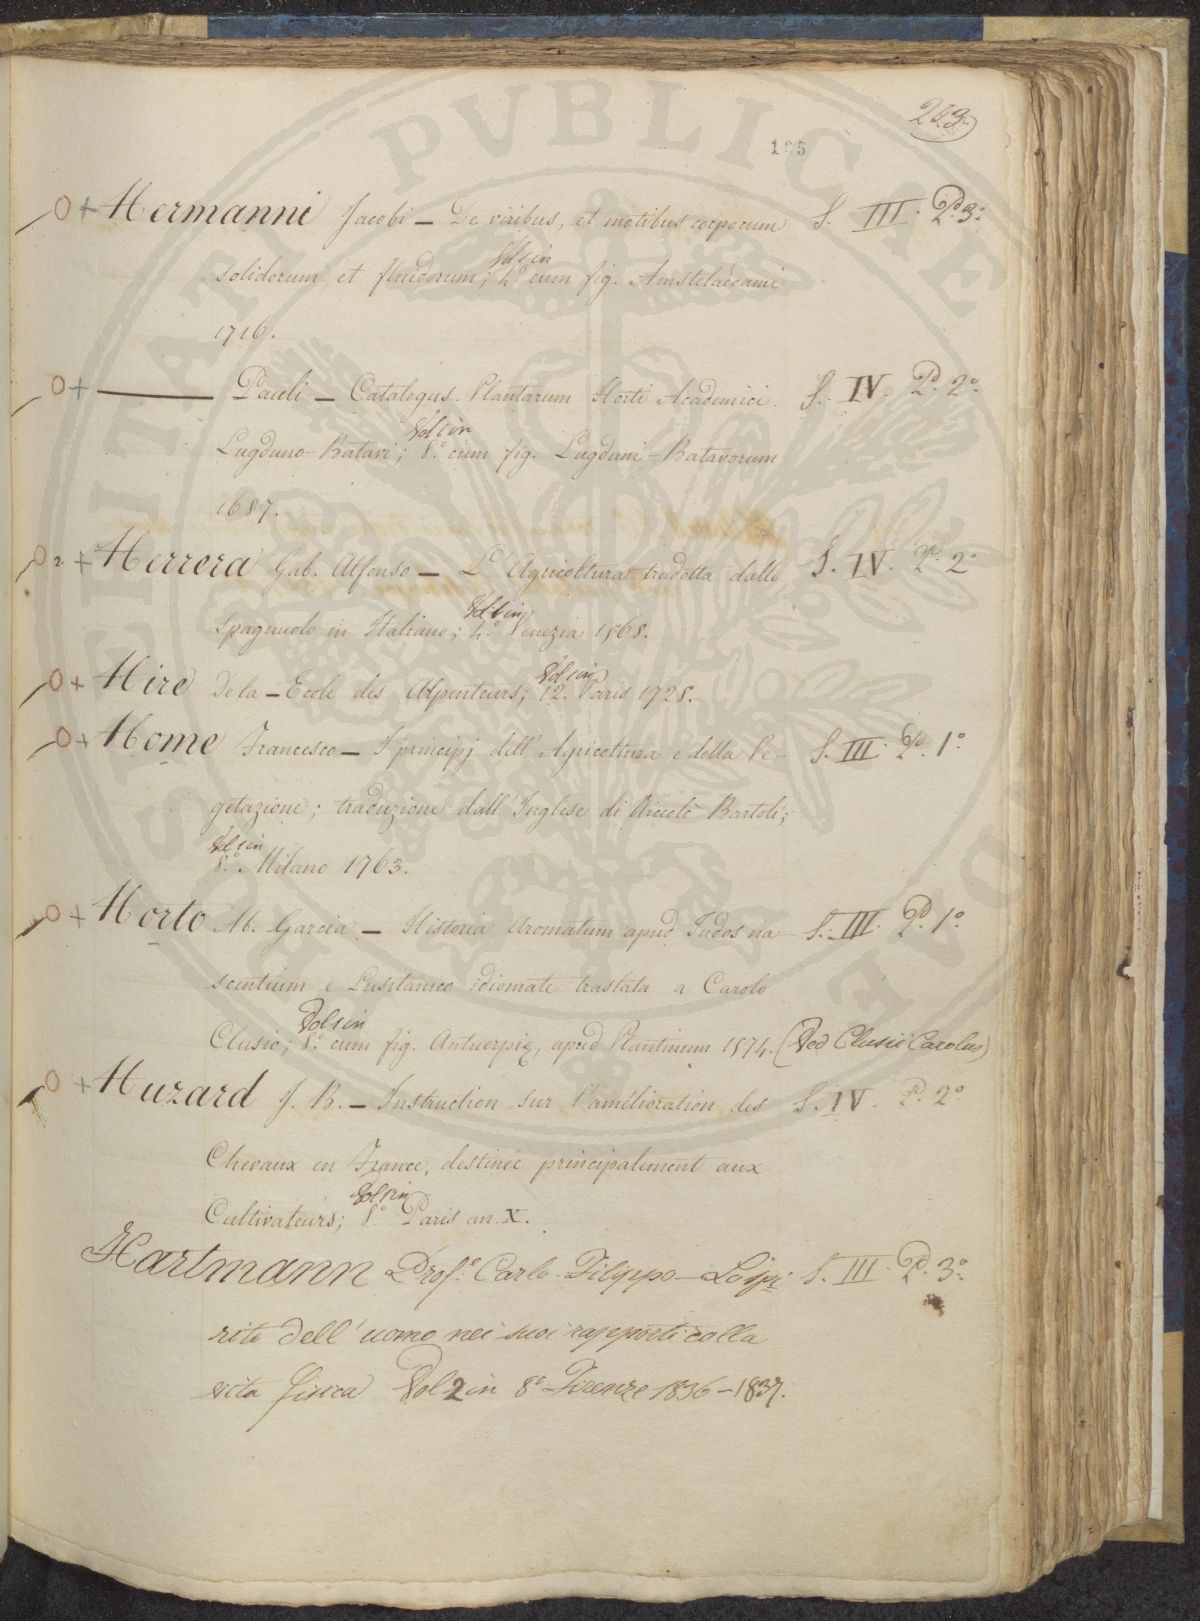 223
195
O + Hermanni Jacobi – De viribus, et motibus corporum S. III. P.º 3.º
solidorum et fluidorum; Vol 1 in 4.º cum fig. Amstelaedami
1716.
O + ——— Pauli – Catalogus Plantarum Horti Academici S. IV. P. 2º
Lugduno-Batavi; Vol 1 in 8.º cum fig. Lugduni-Batavorum
1687.
O 2 + Herrera Gab. Alfonso – L'Agricoltura tradotta dallo S. IV. P. 2º
Spagnuolo in Italiano; Vol 1 in 4.º Venezia 1568.
O + Hire De la – Ecole des Arpenteurs; Vol 1 in 12. Paris 1728.
O + Home Francesco – I principj dell'Agricoltura e della Ve- S. III. P. 1º
getazione; traduzione dall'Inglese di Niccolò Bartoli;
Vol 1 in 8.º Milano 1763.
O + Horto Ab. Garcia – Historia Aromatum apud Indos na- S. III. P. 1º
scentium e Lusitanico idiomate traslata a Carolo
Clusio; Vol 1 in 8.º cum fig. Antuerpię, apud Plantinum 1574. (Ved Clusii Carolus)
O + Huzard J. B. – Instruction sur l'amélioration des S. IV. P. 2º
Chevaux en France, destinée principalement aux
Cultivateurs; Vol 1 in 8.º Paris an. X.
Hartmann Prof.e Carlo Filippo – Lo spi S. III. P. 3º
rito dell'uomo nei suoi rapporti colla
vita fisica Vol 2 in 8º Firenze 1836–1837.